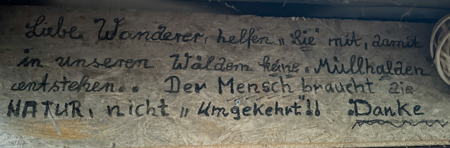 Liebe Wanderer, helfen „Sie" mit, damit
in unseren Wäldern keine Müllhalden
entstehen.. Der Mensch braucht die
NATUR, nicht „Umgekehrt"!! Danke